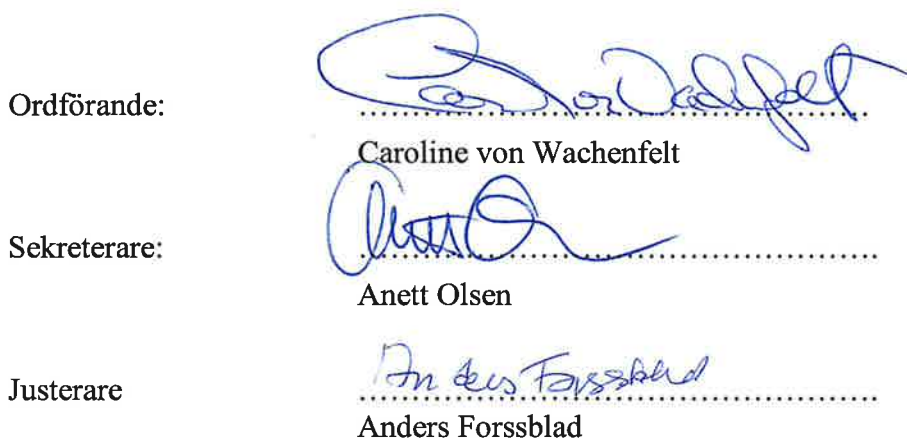 Ordförande:
Caroline von Wachenfelt
Sekreterare:
Anett Olsen
Justerare
Anders Forssblad
Anders Forssblad